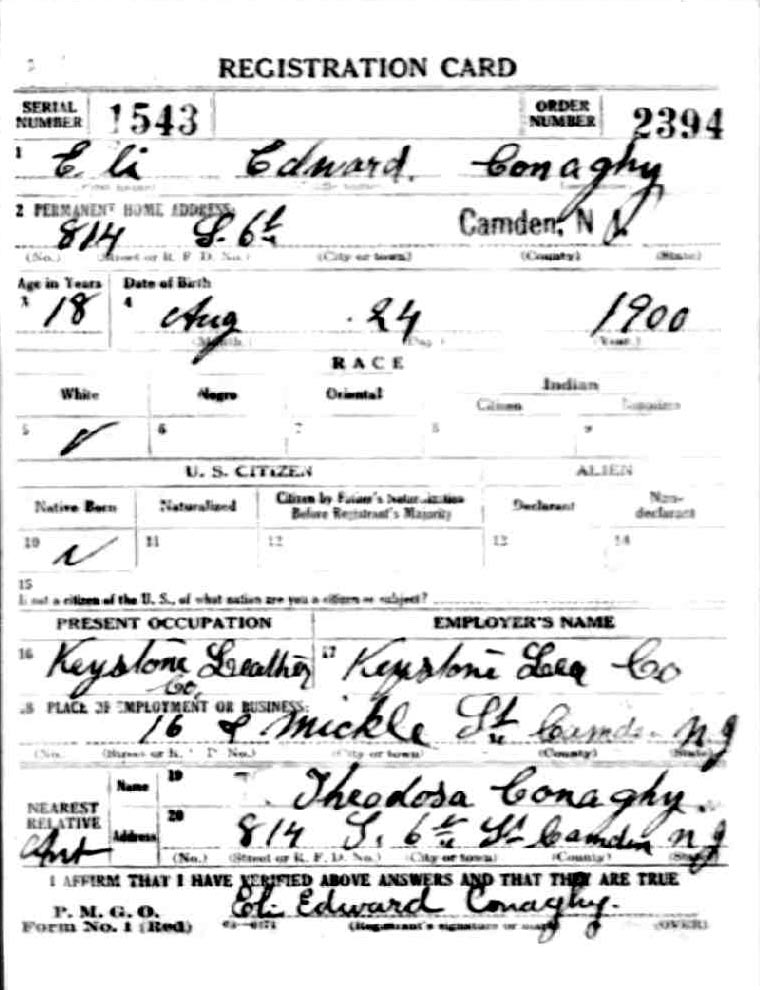 REGISTRATION CARD
SERIAL NUMBER 1543 ORDER NUMBER 2394
1 Eli Edward Conaghy
2 PERMANENT HOME ADDRESS:
814 S. 6th Camden, N J.
(No.) (Street or R. F. D. No.) (City or town) (County) (State)
Age in Years Date of Birth
3 18 4 Aug 24 1900
(Month.) (Day.) (Year.)
RACE
White Negro Oriental Indian
Citizen
5 ✓ 6 7 8 9
U. S. CITIZEN ALIEN
Native Born Naturalized Citizen by Father's Naturalization Before Registrant's Majority Declarant Non-declarant
10 ✓ 11 12 13 14
15
If not a citizen of the U. S., of what nation are you a citizen or subject?
PRESENT OCCUPATION EMPLOYER'S NAME
16 Keystone Leather Co. 17 Keystone Lea Co
18 PLACE OF EMPLOYMENT OR BUSINESS:
16 & Mickle St Camden NJ
(No.) (Street or R. F. D. No.) (City or town) (County) (State)
NEAREST RELATIVE Name 19 Theodosa Conaghy.
Address 20 814 S. 6th St Camden NJ
(No.) (Street or R. F. D. No.) (City or town) (County) (State)
I AFFIRM THAT I HAVE VERIFIED ABOVE ANSWERS AND THAT THEY ARE TRUE
P. M. G. O.
Form No. 1 (Red) Eli Edward Conaghy.
(Registrant's signature or mark) (OVER)